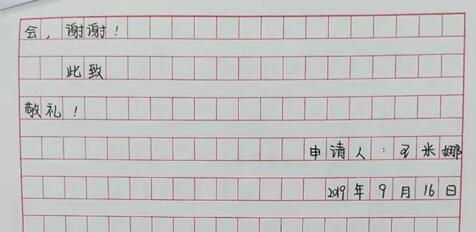 会，谢谢！
此致
敬礼！
申请人：王米娜
2019年9月16日